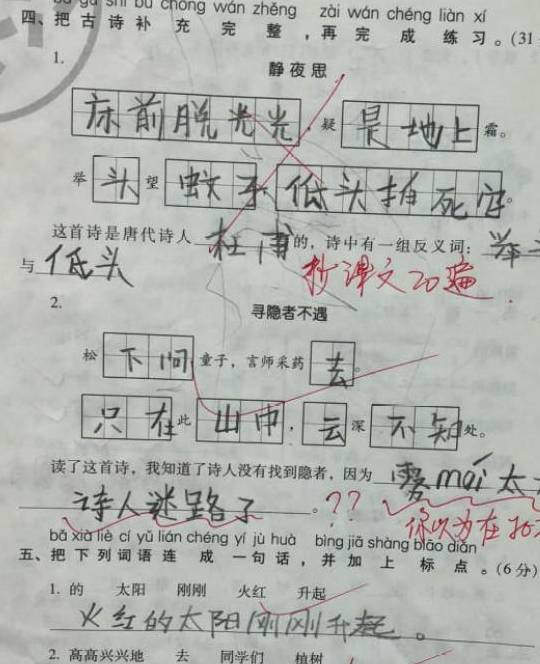 bǔ chōng wán zhěng zài wán chéng liàn xí
四、把古诗补充完整,再完成练习。(31
1.
静夜思
床前脱光光,疑是地上霜。
举头望蚊子,低头拍死它。
这首诗是唐代诗人杜甫的,诗中有一组反义词:举
与低头
抄课文20遍
2.
寻隐者不遇
松下问童子,言师采药去。
只在此山中,云深不知处。
读了这首诗,我知道了诗人没有找到隐者,因为雾mái太大
诗人迷路了。??
你以为在
bǎ xià liè cí yǔ lián chéng yí jù huà bìng jiā shàng biāo diǎn
五、把下列词语连成一句话,并加上标点。(6分)
1. 的 太阳 刚刚 火红 升起
火红的太阳刚刚升起。
2. 高高兴兴地 去 同学们 植树